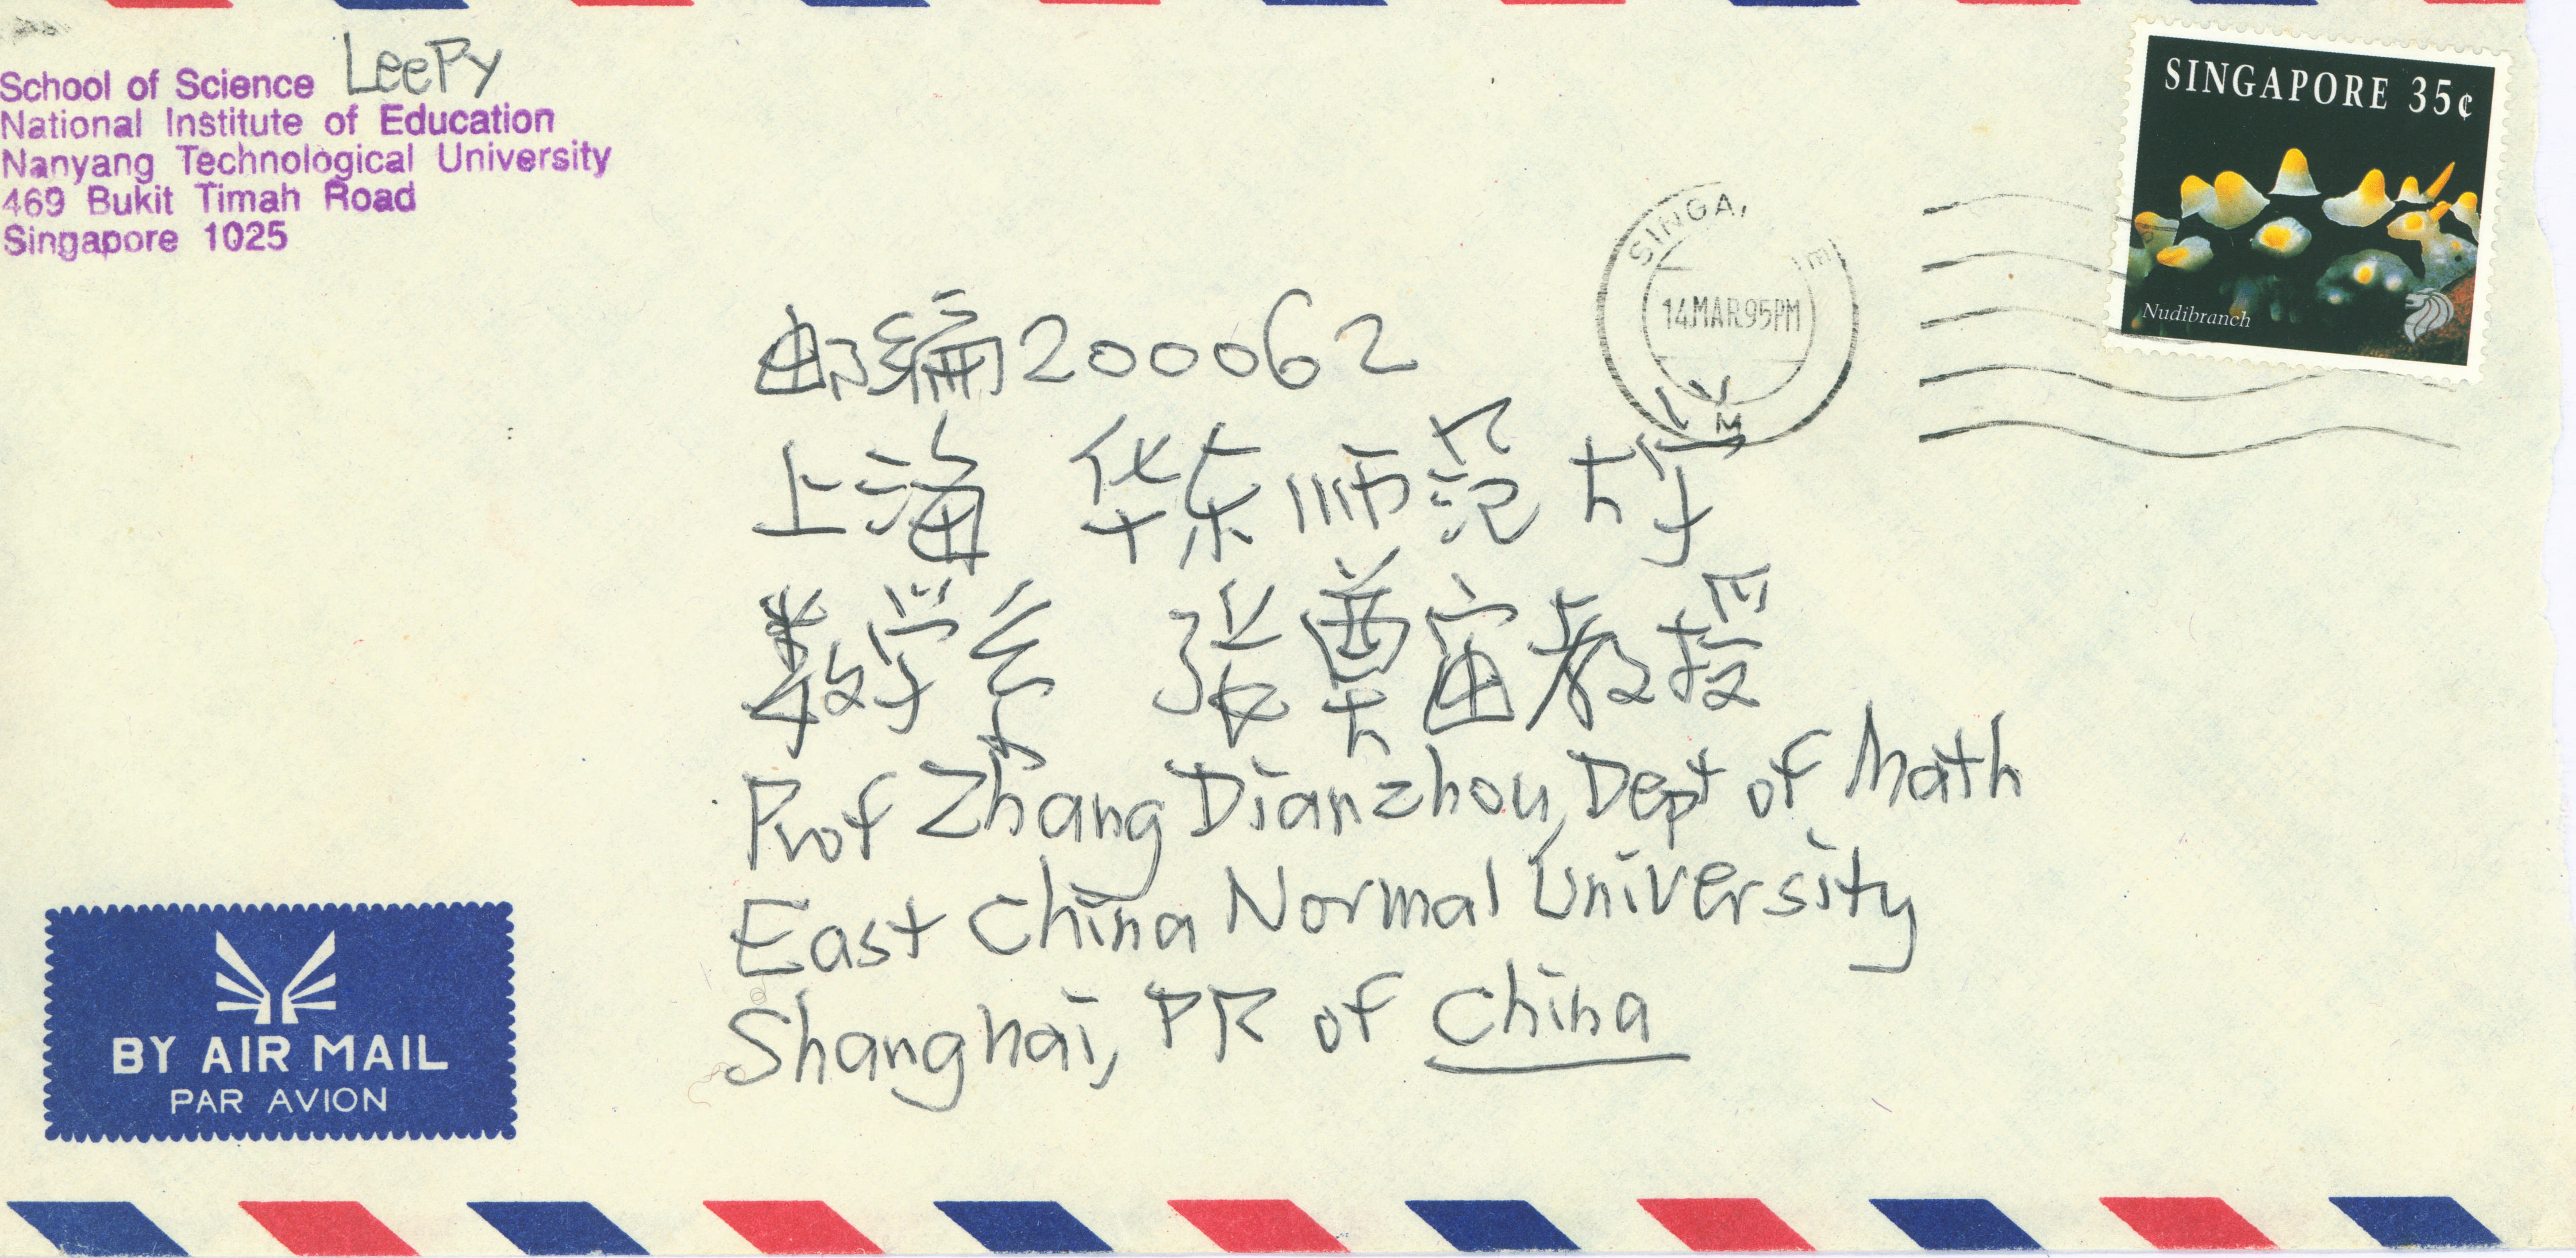 LeePY
School of Science
National Institute of Education
Nanyang Technological University
469 Bukit Timah Road
Singapore 1025
SINGAPORE 35¢
Nudibranch
SINGA
14MAR95PM
邮编200062
上海 华东师范大学
数学系 张奠宙教授
Prof Zhang Dianzhou, Dept of Math
East China Normal University
Shanghai, PR of China
BY AIR MAIL
PAR AVION